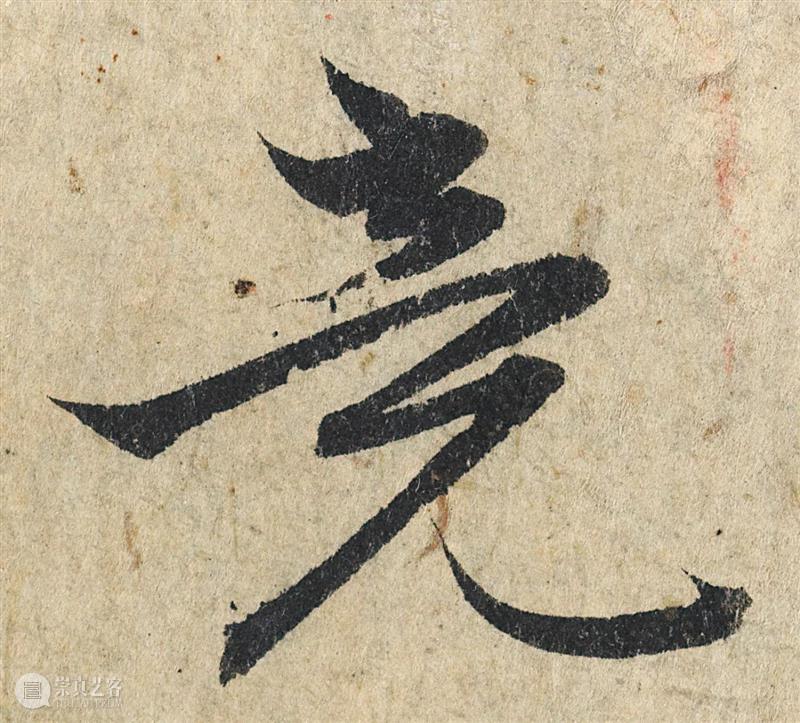 亮
崇真艺客